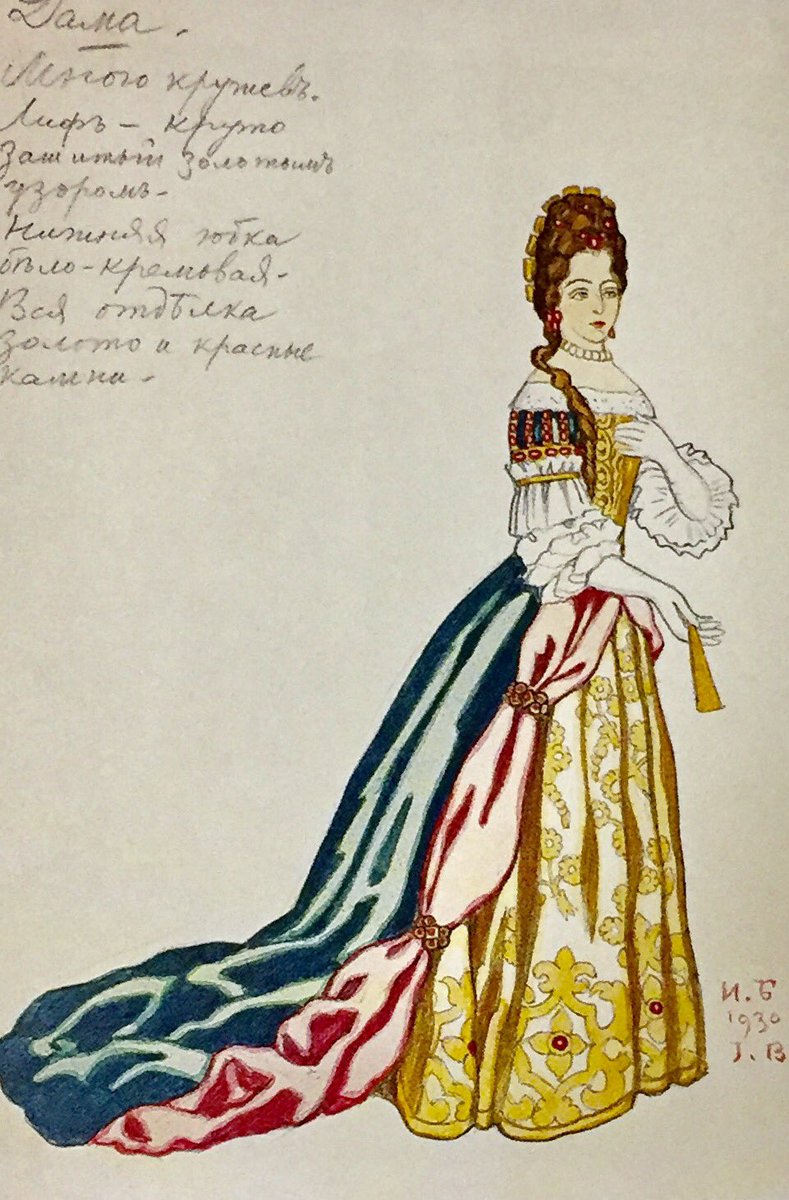 Дама.
Много кружевъ.
Лифъ – круто
зашитый золотымъ
узоромъ –
Нижняя юбка
бѣло-кремовая –
Вся отдѣлка
золото и красные
камни –
И. Б
1930
I. B